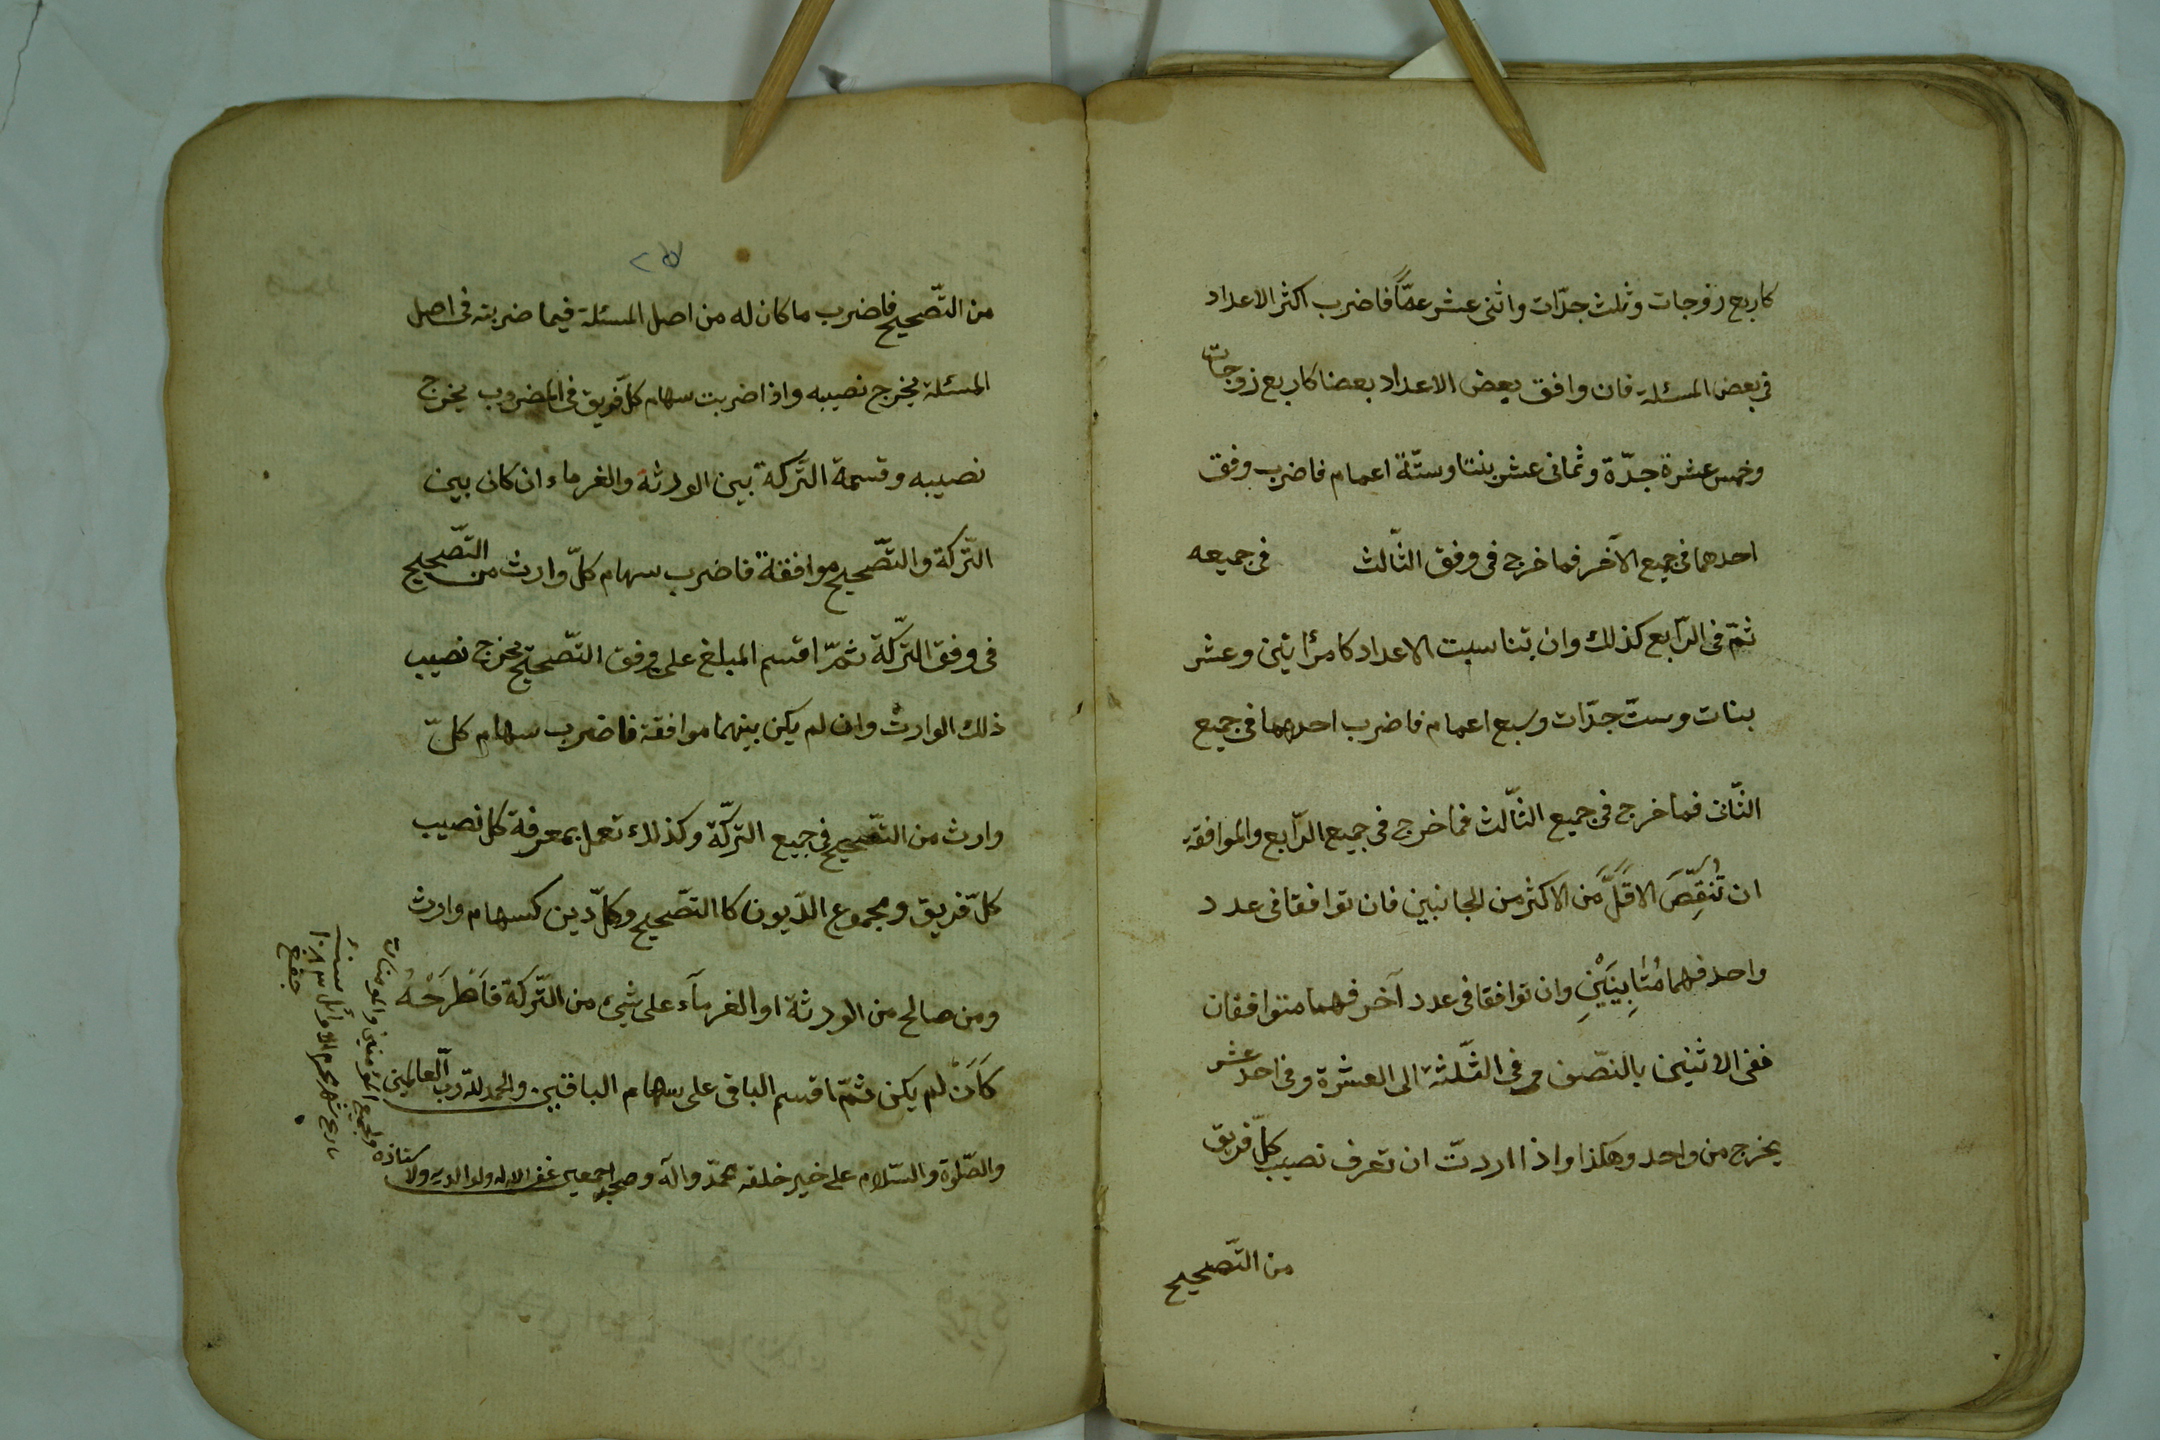 كاربع زوجات وثلث جدّات واثنى عشر عمّاً فاضرب اكثر الاعداد
فى بعض المسئلة فان وافق بعض الاعداد بعضا كاربع زوجات
وخمس عشرة جدّة وثمانى عشر بنتا وستّة اعمام فاضرب وفق
احدهما فى جميع الآخر فما خرج فى وفق الثّالث فى جميعه
ثمّ فى الرّابع كذلك وان تناسبت الاعداد كامرأتين وعشر
بنات وستّ جدّات وسبع اعمام فاضرب احدهما فى جميع
الثّانى فما خرج فى جميع الثّالث فما خرج فى جميع الرّابع والموافقة
ان تُنقِّصَ الاقَلَّ مَن الاكثر من الجانبين فان توافقا فى عدد
واحد فهما مُتَابِينَيْنِ وان توافقا فى عدد آخر فهما متوافقان
ففى الاثنين بالنّصف وفى الثّلثة الى العشرة وفى احد عشر
يخرج من واحد وهكذا واذا اردتّ ان تعرف نصيب كلّ فريق
من التّصحيح
من التّصحيح فاضرب ما كان له من اصل المسئلة فيما ضربته فى اصل
المسئلة يخرج نصيبه واذا ضربت سهام كلّ فريق فى المضروب يخرج
نصيبه وقسمة التّركة بين الورثة والغرماء ان كانى بين
التّركة والتّصحيح موافقة فاضرب سهام كلّ وارث من التّصحيح
فى وفق التّركة ثمّ اقسم المبلغ على وفق التّصحيح يخرج نصيب
ذلك الوارث وان لم يكن بينهما موافقة فاضرب سهام كلّ
وارث من التّصحيح فى جميع التركّة وكذلك تعمل بمعرفة كل نصيب
كلّ فريق ومجموع الدّيون كا التّصحيح وكلّ دين كسهام وارث
ومن صالح من الورثة او الغرمآء على شيئ من التّركة فَاَطْرَحْهُ
كَاَنْ لم يكن ثمّ اقسم الباقى على سهام الباقين والحمد لله ربّ العالمين
والصّلوة والسّلام على خير خلقه محمّد وآله وصحبه اجمعين غفر الله له ولوالديه ولا
ستاذه ولجميع المؤمنين والمؤمنات
تاريخ شهر محرم الاوائل سنة ١٠٨٣